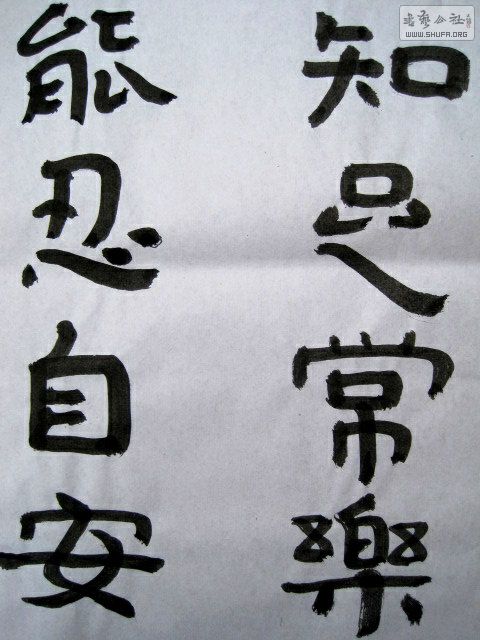 知足常樂
能忍自安
书艺公社
WWW.SHUFA.ORG